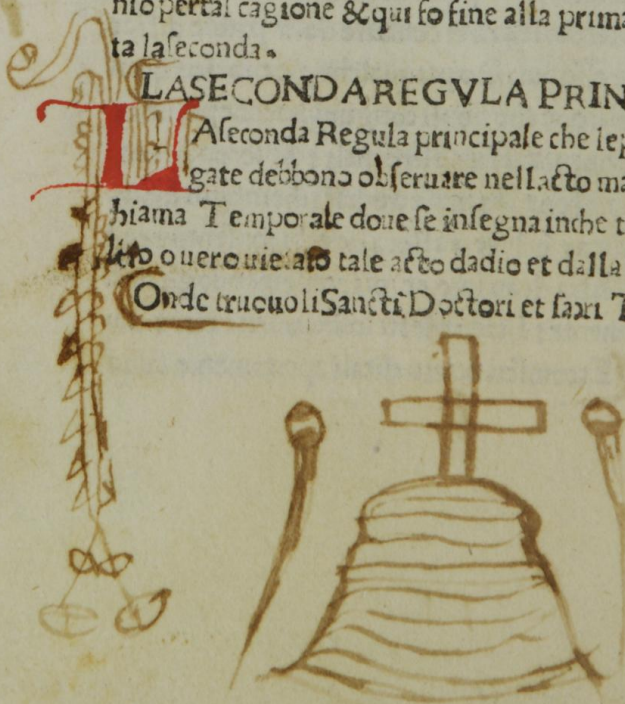 nio per tal cagione & qui fo fine alla prima
ta laseconda.
LASECONDA REGVLA PRIN
LAseconda Regula principale che leg
gate debbono obseruare nellacto ma
hiama Temporale doue se insegna inche t
lito o uero uietato tale acto dadio et dalla
Onde truouo li Sancti Doctori et sacri T